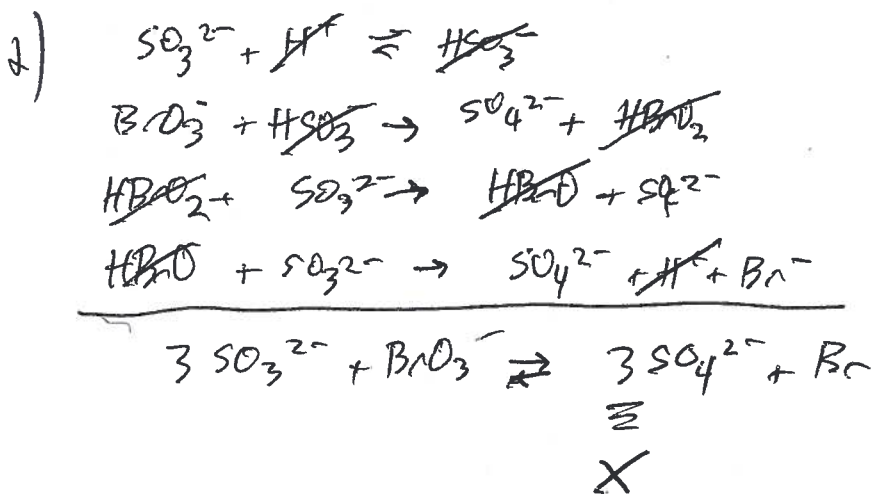 2) SO₃²⁻ + H⁺ ⇌ HSO₃⁻
BrO₃⁻ + HSO₃⁻ → SO₄²⁻ + HBrO₂
HBrO₂ + SO₃²⁻ → HBrO + SO₄²⁻
HBrO + SO₃²⁻ → SO₄²⁻ + H⁺ + Br⁻
3 SO₃²⁻ + BrO₃⁻ ⇌ 3 SO₄²⁻ + Br
X